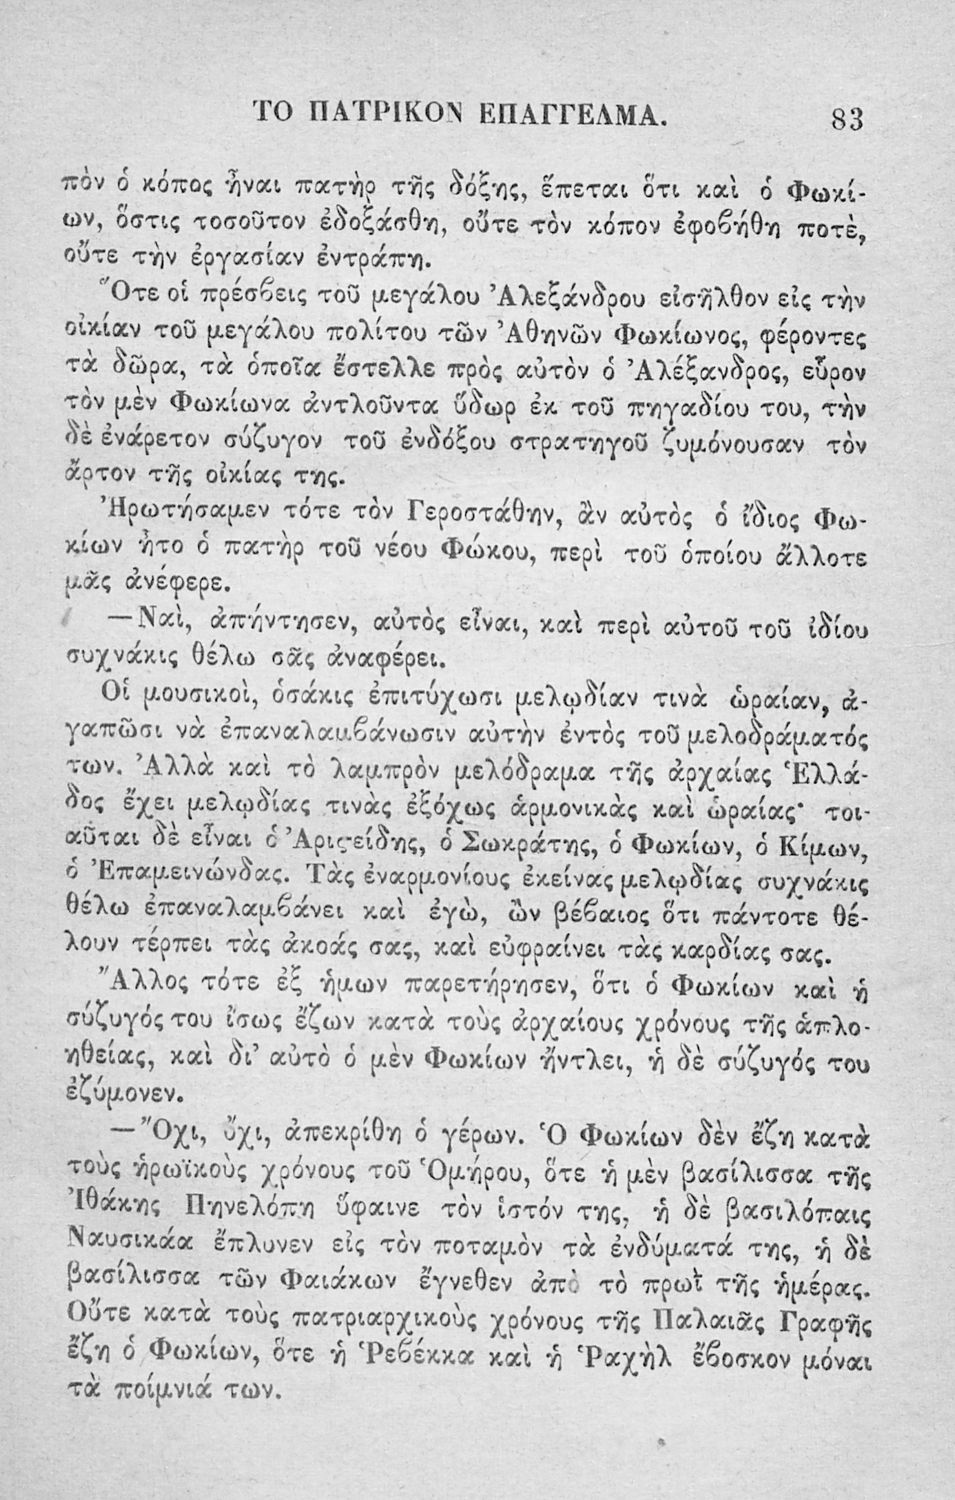 ΤΟ ΠΑΤΡΙΚΟΝ ΕΠΑΓΓΕΛΜΑ. 83
πὸν ὁ κόπος ἦναι πατὴρ τῆς δόξης, ἕπεται ὅτι καὶ ὁ Φωκί-
ων, ὅστις τοσοῦτον ἐδοξάσθη, οὔτε τὸν κόπον ἐφοβήθη ποτὲ,
οὔτε τὴν ἐργασίαν ἐντράπη.
Ὅτε οἱ πρέσβεις τοῦ μεγάλου Ἀλεξάνδρου εἰσῆλθον εἰς τὴν
οἰκίαν τοῦ μεγάλου πολίτου τῶν Ἀθηνῶν Φωκίωνος, φέροντες
τὰ δῶρα, τὰ ὁποῖα ἔστελλε πρὸς αὐτὸν ὁ Ἀλέξανδρος, εὗρον
τὸν μὲν Φωκίωνα ἀντλοῦντα ὕδωρ ἐκ τοῦ πηγαδίου του, τὴν
δὲ ἐνάρετον σύζυγον τοῦ ἐνδόξου στρατηγοῦ ζυμόνουσαν τὸν
ἄρτον τῆς οἰκίας της.
Ἠρωτήσαμεν τότε τὸν Γεροστάθην, ἂν αὐτὸς ὁ ἴδιος Φω-
κίων ἦτο ὁ πατὴρ τοῦ νέου Φώκου, περὶ τοῦ ὁποίου ἄλλοτε
μᾶς ἀνέφερε.
—Ναὶ, ἀπήντησεν, αὐτὸς εἶναι, καὶ περὶ αὐτοῦ τοῦ ἰδίου
συχνάκις θέλω σᾶς ἀναφέρει.
Οἱ μουσικοὶ, ὁσάκις ἐπιτύχωσι μελῳδίαν τινὰ ὡραίαν, ἀ-
γαπῶσι νὰ ἐπαναλαμβάνωσιν αὐτὴν ἐντὸς τοῦ μελοδράματός
των. Ἀλλὰ καὶ τὸ λαμπρὸν μελόδραμα τῆς ἀρχαίας Ἑλλά-
δος ἔχει μελῳδίας τινὰς ἐξόχως ἁρμονικὰς καὶ ὡραίας· τοι-
αῦται δὲ εἶναι ὁ Ἀριϛείδης, ὁ Σωκράτης, ὁ Φωκίων, ὁ Κίμων,
ὁ Ἐπαμεινώνδας. Τὰς ἐναρμονίους ἐκείνας μελῳδίας συχνάκις
θέλω ἐπαναλαμβάνει καὶ ἐγὼ, ὢν βέβαιος ὅτι πάντοτε θέ-
λουν τέρπει τὰς ἀκοάς σας, καὶ εὐφραίνει τὰς καρδίας σας.
Ἄλλος τότε ἐξ ἡμων παρετήρησεν, ὅτι ὁ Φωκίων καὶ ἡ
σύζυγός του ἴσως ἔζων κατὰ τοὺς ἀρχαίους χρόνους τῆς ἁπλο-
ηθείας, καὶ δι’ αὐτὸ ὁ μὲν Φωκίων ἤντλει, ἡ δὲ σύζυγός του
ἐζύμονεν.
—Ὄχι, ὄχι, ἀπεκρίθη ὁ γέρων. Ὁ Φωκίων δὲν ἔζη κατὰ
τοὺς ἡρωϊκοὺς χρόνους τοῦ Ὁμήρου, ὅτε ἡ μὲν βασίλισσα τῆς
Ἰθάκης Πηνελόπη ὕφαινε τὸν ἱστόν της, ἡ δὲ βασιλόπαις
Ναυσικάα ἔπλυνεν εἰς τὸν ποταμὸν τὰ ἐνδύματά της, ἡ δὲ
βασίλισσα τῶν Φαιάκων ἔγνεθεν ἀπὸ τὸ πρωῒ τῆς ἡμέρας.
Οὔτε κατὰ τοὺς πατριαρχικοὺς χρόνους τῆς Παλαιᾶς Γραφῆς
ἔζη ὁ Φωκίων, ὅτε ἡ Ῥεβέκκα καὶ ἡ Ῥαχὴλ ἔβοσκον μόναι
τὰ ποίμνιά των.